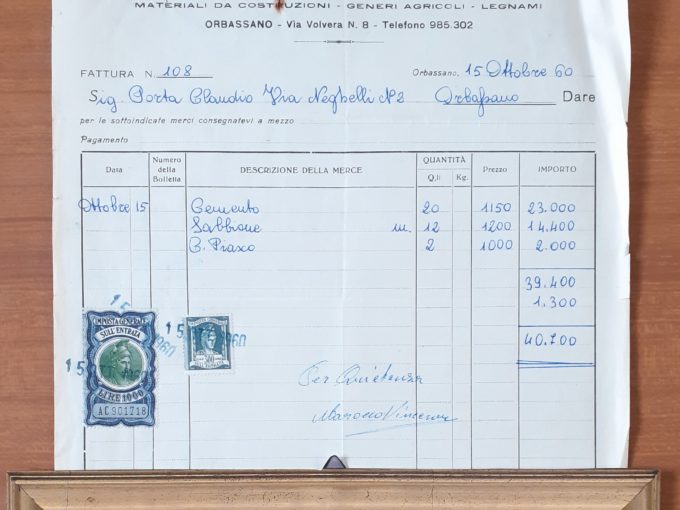 MATERIALI DA COSTRUZIONI - GENERI AGRICOLI - LEGNAMI
ORBASSANO - Via Volvera N. 8 - Telefono 985.302
FATTURA N. 108 Orbassano, 15 Ottobre 60
Sig. Porta Claudio Via Neghelli N° 2 Orbassano Dare
per le sottoindicate merci consegnatevi a mezzo
Pagamento
Data Numero della Bolletta DESCRIZIONE DELLA MERCE QUANTITÀ Q.li Kg. Prezzo IMPORTO
Ottobre 15 Cemento 20 1150 23.000
Sabbione m. 12 1200 14.400
2 1000 2.000
39.400
1.300
40.700
IMPOSTA GENERALE
SULL'ENTRATA
LIRE 1000
AC 901718
15 1960
15 1960
Per Quietanza